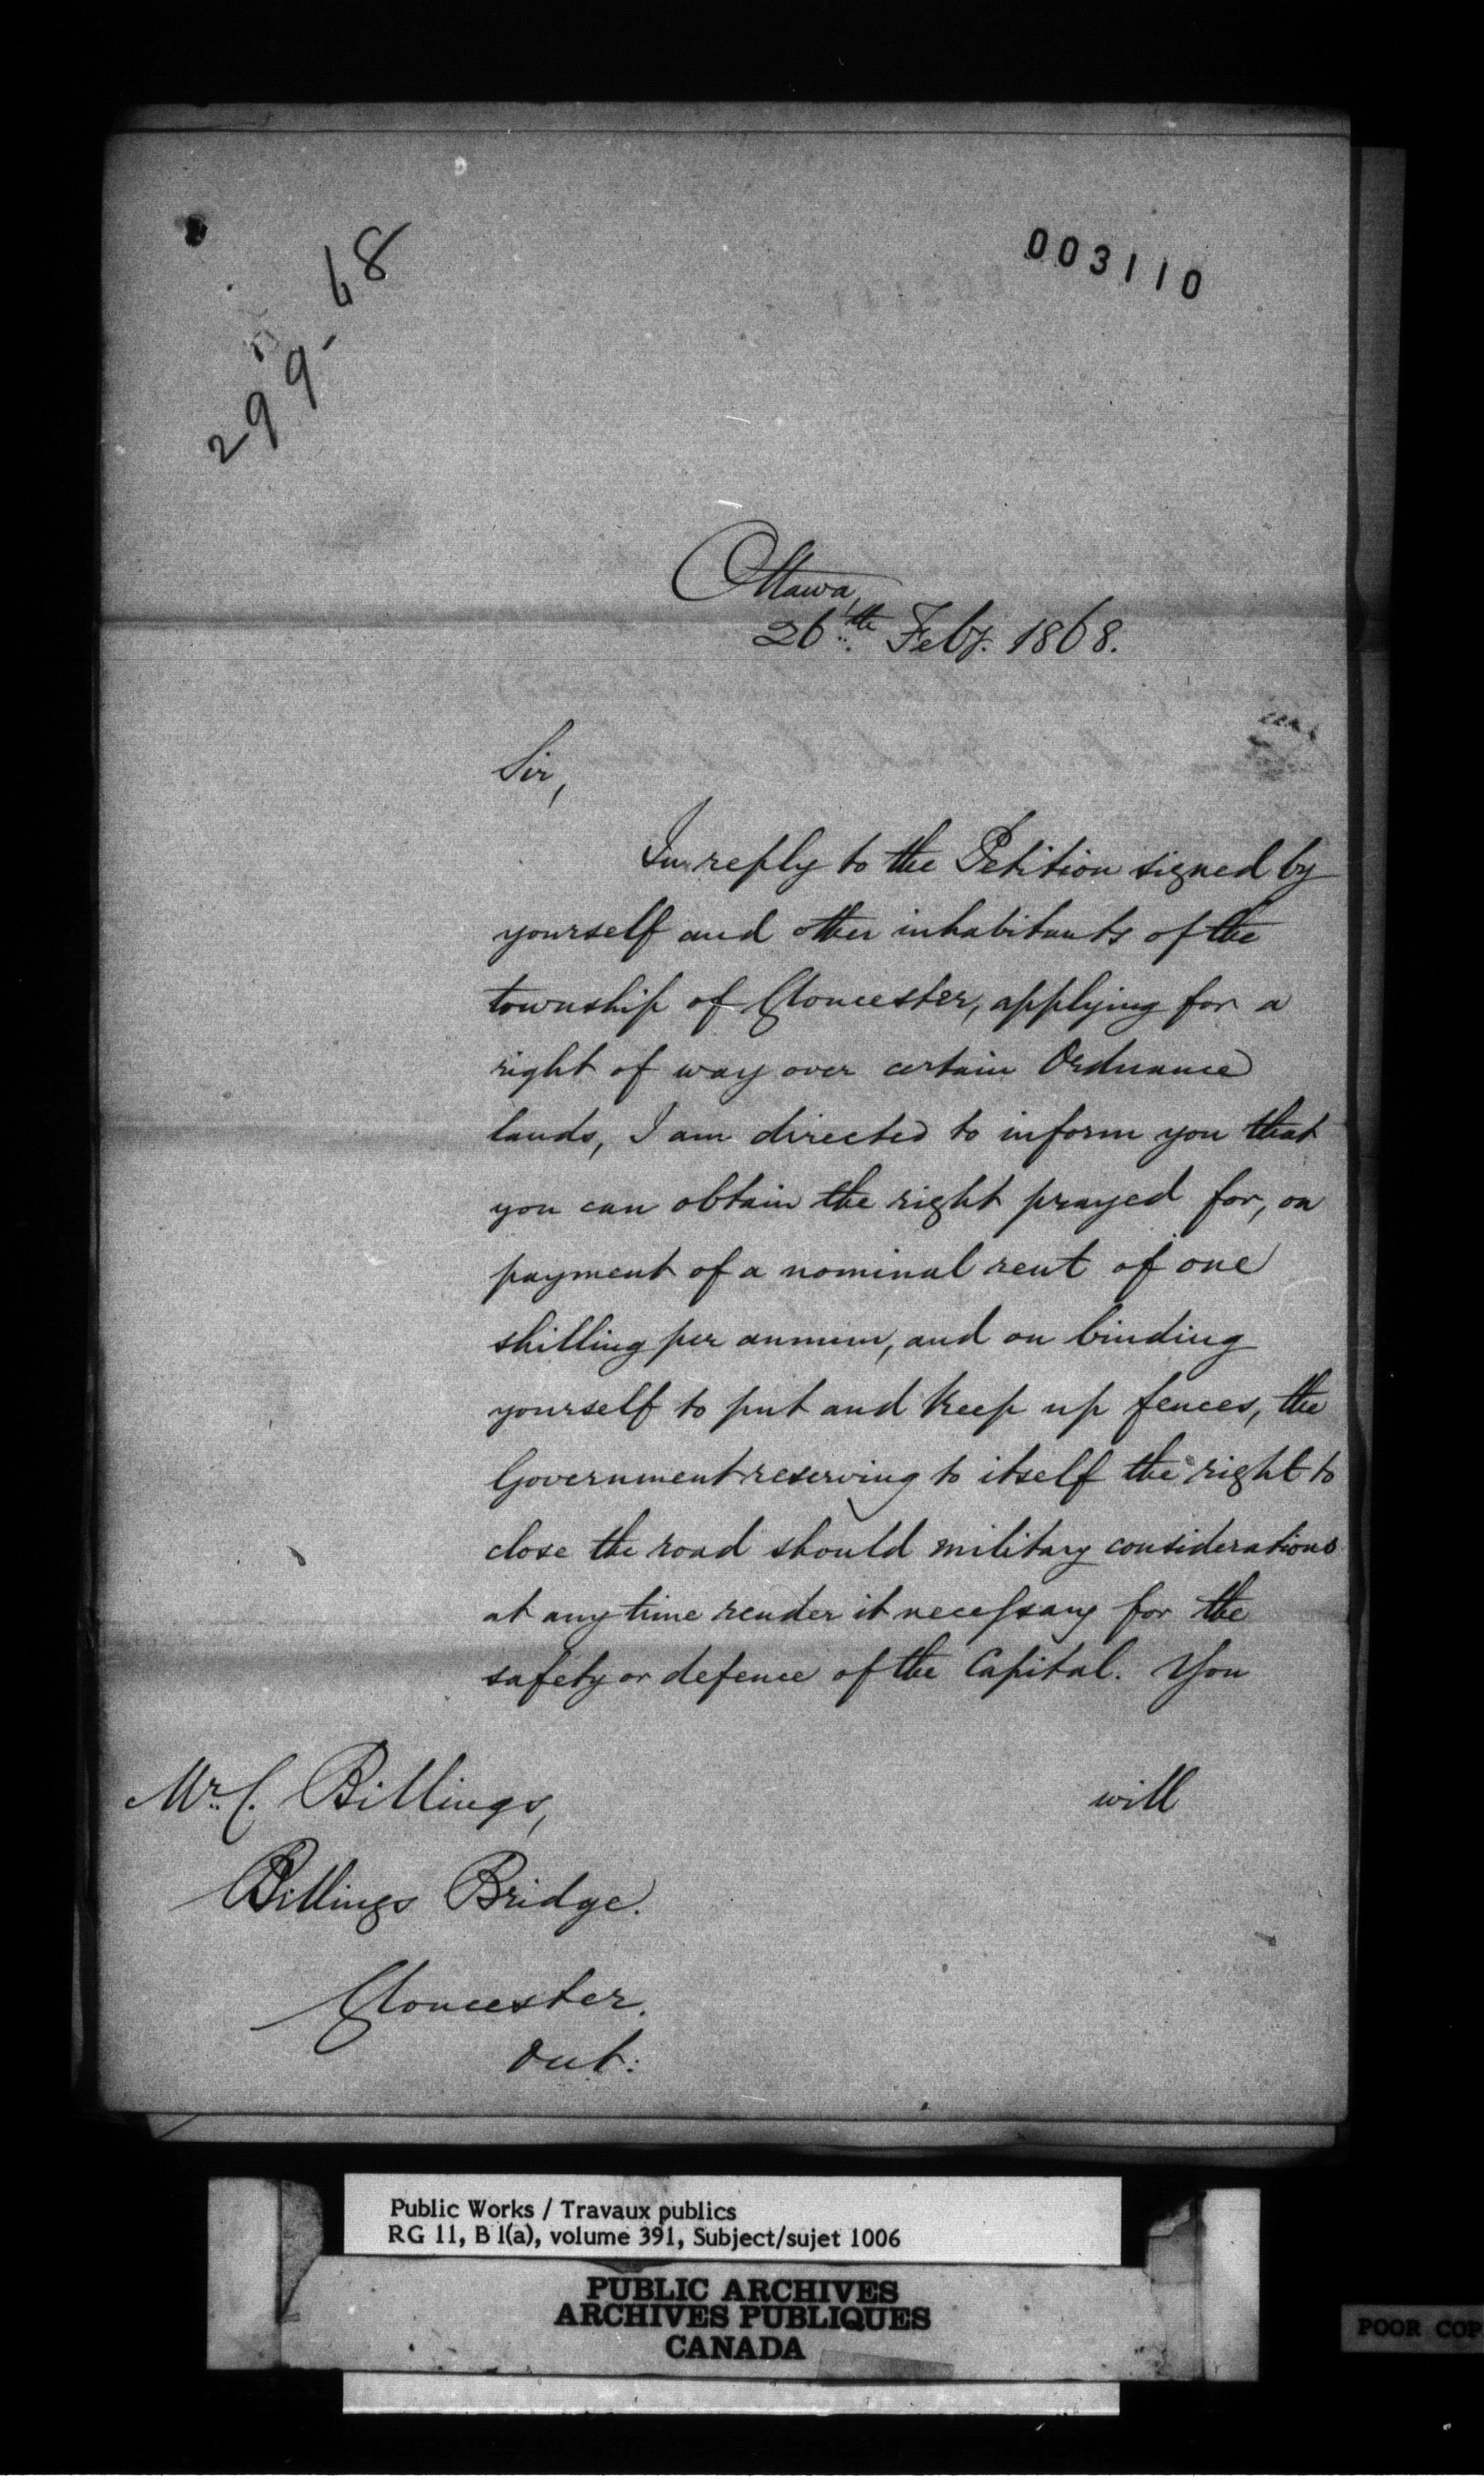 299-68
003110
Ottawa,
26th Feby. 1868.
Sir,
In reply to the Petition signed by
yourself and other inhabitants of the
township of Gloucester, applying for a
right of way over certain Ordnance
lands, I am directed to inform you that
you can obtain the right prayed for, on
payment of a nominal rent of one
shilling per annum, and on binding
yourself to put and keep up fences, the
Government reserving to itself the right to
close the road should military considerations
at any time render it necessary for the
safety or defence of the Capital. You
will
Mr. C. Billings,
Billings Bridge.
Gloucester.
Ont:
Public Works / Travaux publics
RG 11, B 1(a), volume 391, Subject/sujet 1006
PUBLIC ARCHIVES
ARCHIVES PUBLIQUES
CANADA
POOR COP